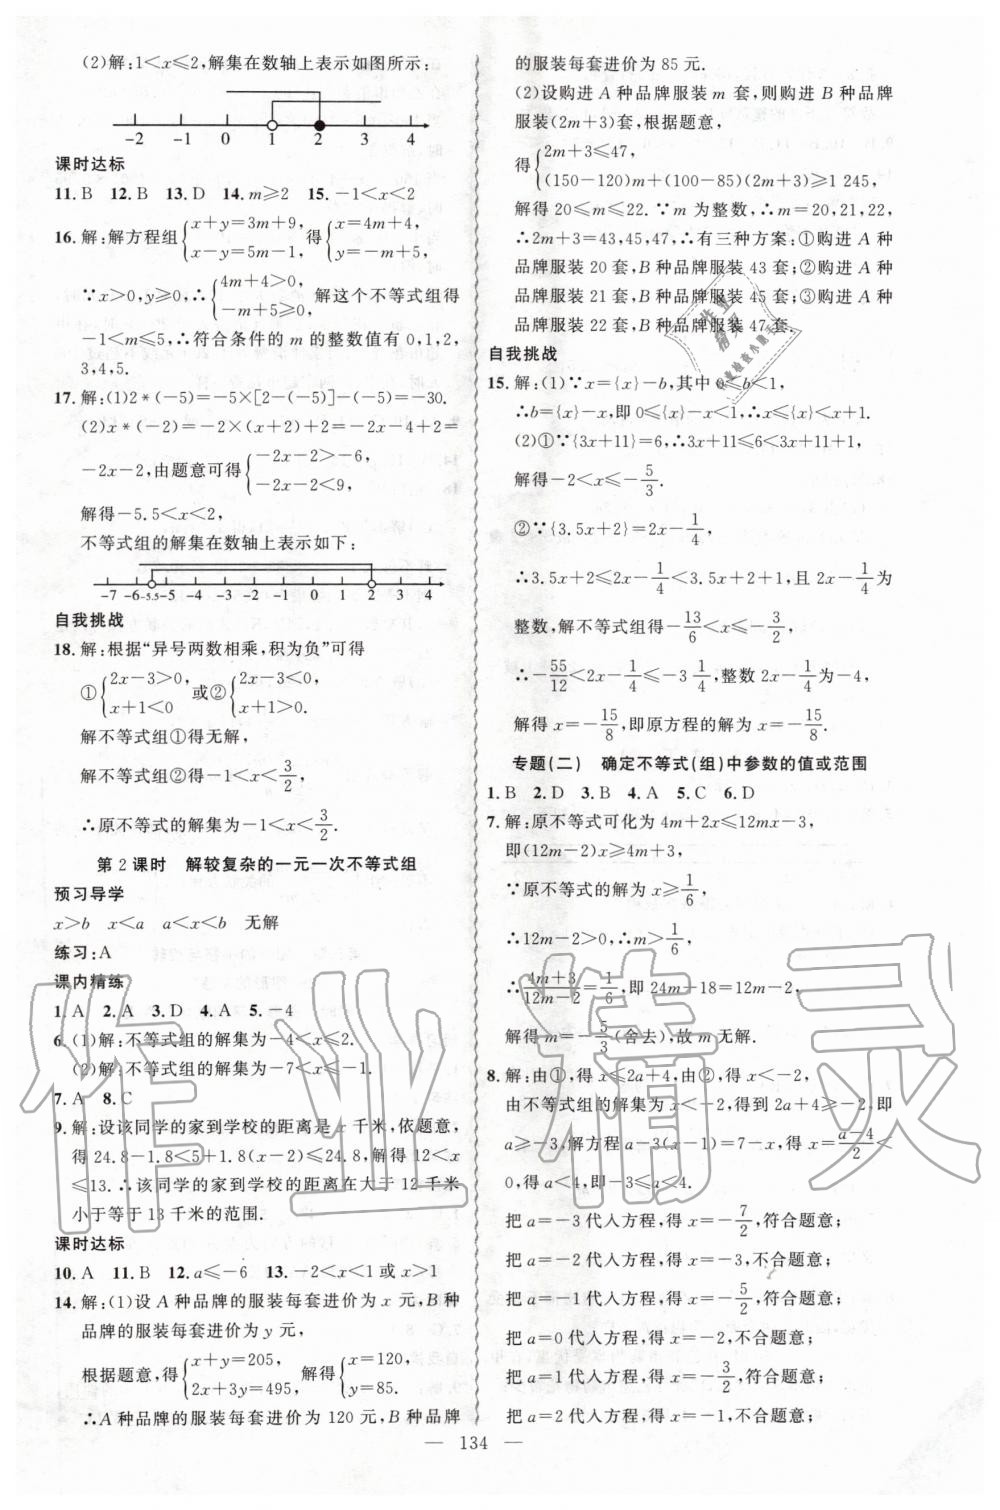 (2)解:-1<x≤2,解集在数轴上表示如图所示:
-2 -1 0 1 2 3 4
课时达标
11. B 12. B 13. D 14. m≥2 15. -1<x<2
16. 解:解方程组{x+y=3m+9, x-y=5m-1, 得{x=4m+4, y=-m+5,
∵x>0,y≥0,∴{4m+4>0, -m+5≥0. 解这个不等式组得
-1<m≤5,∴符合条件的 m 的整数值有 0,1,2,
3,4,5.
17. 解:(1)2*(-5)=-5×[2-(-5)]-(-5)=-30.
(2)x*(-2)=-2×(x+2)+2=-2x-4+2=
-2x-2,由题意可得{-2x-2>-6, -2x-2<9,
解得-5.5<x<2,
不等式组的解集在数轴上表示如下:
-7 -6 -5.5 -5 -4 -3 -2 -1 0 1 2 3 4
自我挑战
18. 解:根据“异号两数相乘,积为负”可得
①{2x-3>0, x+1<0 或②{2x-3<0, x+1>0.
解不等式组①得无解,
解不等式组②得-1<x<3/2,
∴原不等式的解集为-1<x<3/2.
第 2 课时 解较复杂的一元一次不等式组
预习导学
x>b x<a a<x<b 无解
练习:A
课内精练
1. A 2. A 3. D 4. A 5. -4
6. (1)解:不等式组的解集为-4<x≤2.
(2)解:不等式组的解集为-7<x≤-1.
7. A 8. C
9. 解:设该同学的家到学校的距离是 x 千米,依题意,
得 24.8-1.8<5+1.8(x-2)≤24.8,解得 12<x
≤13.∴该同学的家到学校的距离在大于 12 千米
小于等于 13 千米的范围.
课时达标
10. A 11. B 12. a≤-6 13. -2<x<1 或 x>1
14. 解:(1)设 A 种品牌的服装每套进价为 x 元,B 种
品牌的服装每套进价为 y 元,
根据题意,得{x+y=205, 2x+3y=495, 解得{x=120, y=85.
∴A 种品牌的服装每套进价为 120 元,B 种品牌
的服装每套进价为 85 元.
(2)设购进 A 种品牌服装 m 套,则购进 B 种品牌
服装(2m+3)套,根据题意,
得{2m+3≤47, (150-120)m+(100-85)(2m+3)≥1 245,
解得 20≤m≤22.∵m 为整数,∴m=20,21,22,
∴2m+3=43,45,47,∴有三种方案:①购进 A 种
品牌服装 20 套,B 种品牌服装 43 套;②购进 A 种
品牌服装 21 套,B 种品牌服装 45 套;③购进 A 种
品牌服装 22 套,B 种品牌服装 47 套.
自我挑战
15. 解:(1)∵x={x}-b,其中 0≤b<1,
∴b={x}-x,即 0≤{x}-x<1,∴x≤{x}<x+1.
(2)①∵{3x+11}=6,∴3x+11≤6<3x+11+1,
解得-2<x≤-5/3.
②∵{3.5x+2}=2x-1/4,
∴3.5x+2≤2x-1/4<3.5x+2+1,且 2x-1/4为
整数,解不等式组得-13/6<x≤-3/2,
∴-55/12<2x-1/4≤-3 1/4,整数 2x-1/4为-4,
解得 x=-15/8,即原方程的解为 x=-15/8.
专题(二) 确定不等式(组)中参数的值或范围
1. B 2. D 3. B 4. A 5. C 6. D
7. 解:原不等式可化为 4m+2x≤12mx-3,
即(12m-2)x≥4m+3,
∵原不等式的解为 x≥1/6,
∴12m-2>0,∴m>1/6,
∴(4m+3)/(12m-2)=1/6,即 24m+18=12m-2,
解得 m=-5/3(舍去),故 m 无解.
8. 解:由①,得 x≤2a+4,由②,得 x<-2,
由不等式组的解集为 x<-2,得到 2a+4≥-2,即
a≥-3,解方程 a-3(x-1)=7-x,得 x=(a-4)/2<
0,得到 a<4,∴-3≤a<4.
把 a=-3 代入方程,得 x=-7/2,符合题意;
把 a=-2 代入方程,得 x=-3,不合题意;
把 a=-1 代入方程,得 x=-5/2,符合题意;
把 a=0 代入方程,得 x=-2,不合题意;
把 a=1 代入方程,得 x=-3/2,符合题意;
把 a=2 代入方程,得 x=-1,不合题意;
— 134 —
作业精灵